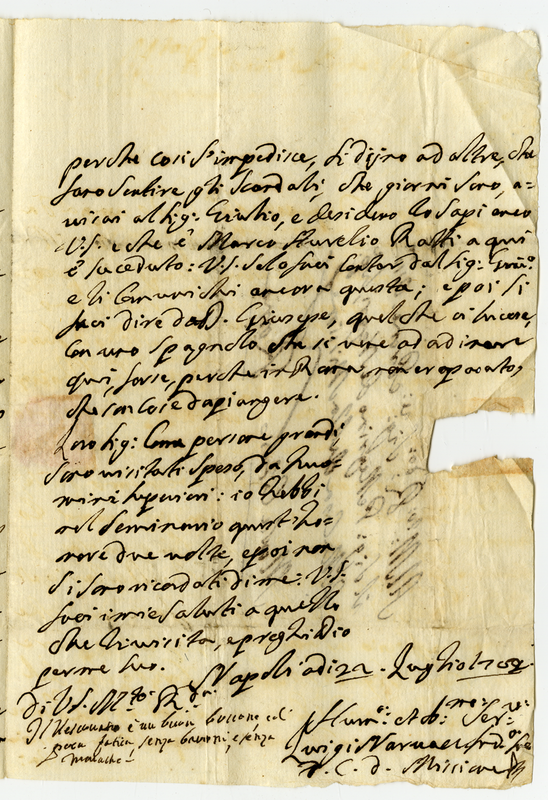 perche così s'impedisce, si dijno ad altre, che
sono sentire gli scandali, che giorni sono, a=
visai al sig: Giulio, e desidero lo sapi anco
V.S. e che è Marco Aurelio Ratti a qui
è succeduto: V.S. se lo faci contar dal sig:
e li comunichi ancora questa; e poi si
faci dire da D. Giusepe, quel che ci
con uno spagnolo che si vene ad
qui, forse, perche in Roma non era
che son cose da piangere.
Loro sig: Come persone grandi
sono visitati speso, da huo=
mini superiori: io hebbi
nel seminario questi ho=
nore due volte, e poi non
si sono ricordati di me: V.S.
faci i miei saluti a quello
che li visita, e preghi Dio
per me suo. Napoli adi 22. Luglio
Di V.S. M.to R.da
Il Vescovato è un buon boccone, ed
poca fatica, senza baroni, e senza
Hum.o et
Luigi
d. Missione